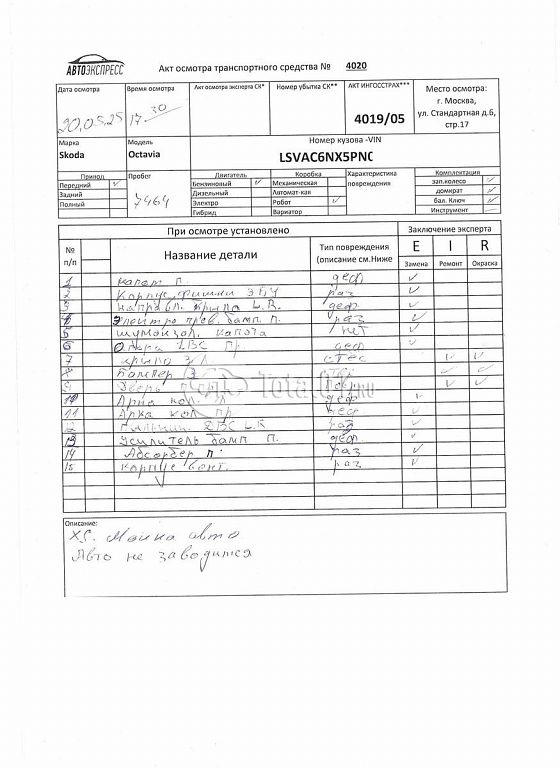 АВТОЭКСПРЕСС
Акт осмотра транспортного средства № 4020
Дата осмотра
Время осмотра
Акт осмотра эксперта СК*
Номер убытка СК**
АКТ ИНГОССТРАХ***
Место осмотра:
г. Москва,
ул. Стандартная д.6,
стр.17
20.05.25
17 30
4019/05
Марка
Модель
Номер кузова -VIN
Skoda
Octavia
LSVAC6NX5PNC
Привод
Пробег
Двигатель
Коробка
Характеристика
повреждения
Комплектация
Передний ✓
Бензиновый ✓
Механическая
зап.колесо ✓
Задний
7464
Дизельный
Автомат-кая
домкрат ✓
Полный
Электро
Робот ✓
бал. Ключ ✓
Гибрид
Вариатор
Инструмент —
При осмотре установлено
Заключение эксперта
№
п/п
Название детали
Тип повреждения
(описание см.Ниже
E I R
Замена Ремонт Окраска
1 капот п. деф ✓
2 Корпус фишки ЭБУ раз ✓
3 направл. крыла L.R. деф ✓
4 Электро пров. бамп. п. раз ✓
5 шумоизол. капота нет ✓
6 Опора ДВС пр. деф ✓
7 крыло З Л ✓ ✓
8 Бампер З ✓ ✓
9 Дверь ✓ ✓
TotalCar.RU
10 Арка кол. Л деф ✓
11 Арка кол пр. деф ✓
12 ДВС L.R раз ✓
13 Усилитель бамп П. деф. ✓
14 Абсорбер п. раз ✓
15 корпус вент. раз ✓
Описание:
Х.С. Мойка авто
Авто не заводится